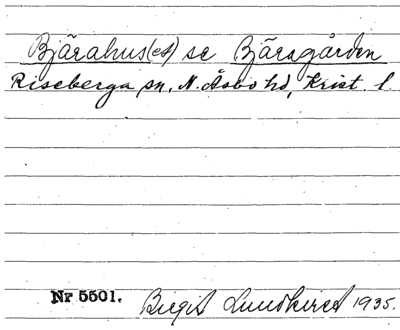 Bjärahus(et) se Bjäragården
Riseberga sn, N. Åsbo hd, Krist. l.
Nr 5501. Birgit Lundkvist 1935.